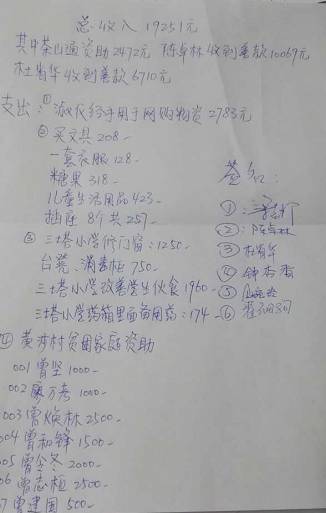 总收入 19251元
其中茶山通资助2472元 陈卓林收到善款10069元
杜省华收到善款6710元
支出:① 淑仪经手用于网购物资 2783元
② 买文具 208-
一套衣服 128-
糖果 318-
儿童生活用品 423-
插座 8个共257-
③ 三塔小学修门窗:1250-
台凳、消毒柜 750-
三塔小学改善学生伙食 1960-
三塔小学药箱里面备用药:174-
签名:
①:
②:陈卓林
③ 杜省华
④ 钟杏香
⑤
⑥
④ 黄沙村贫困家庭资助
001 曾坚 1000-
002 廖万寿 1000-
003 曾焕林 2500-
004 曾和锋 1500-
005 曾冬 2000-
06 曾志桓 2500-
07 曾建国 500-